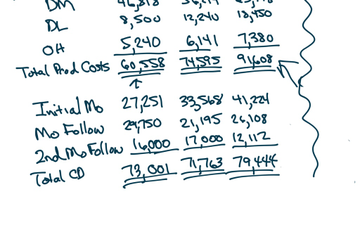 DM
DL 8,500 12,240 18,450
OH 5,240 6,141 7,380
Total Prod Costs 60,558 74,595 91,608
Initial Mo 27,251 33,568 41,224
Mo Follow 29,750 21,195 26,108
2nd Mo Follow 16,000 17,000 12,112
Total CD 73,001 71,763 79,444